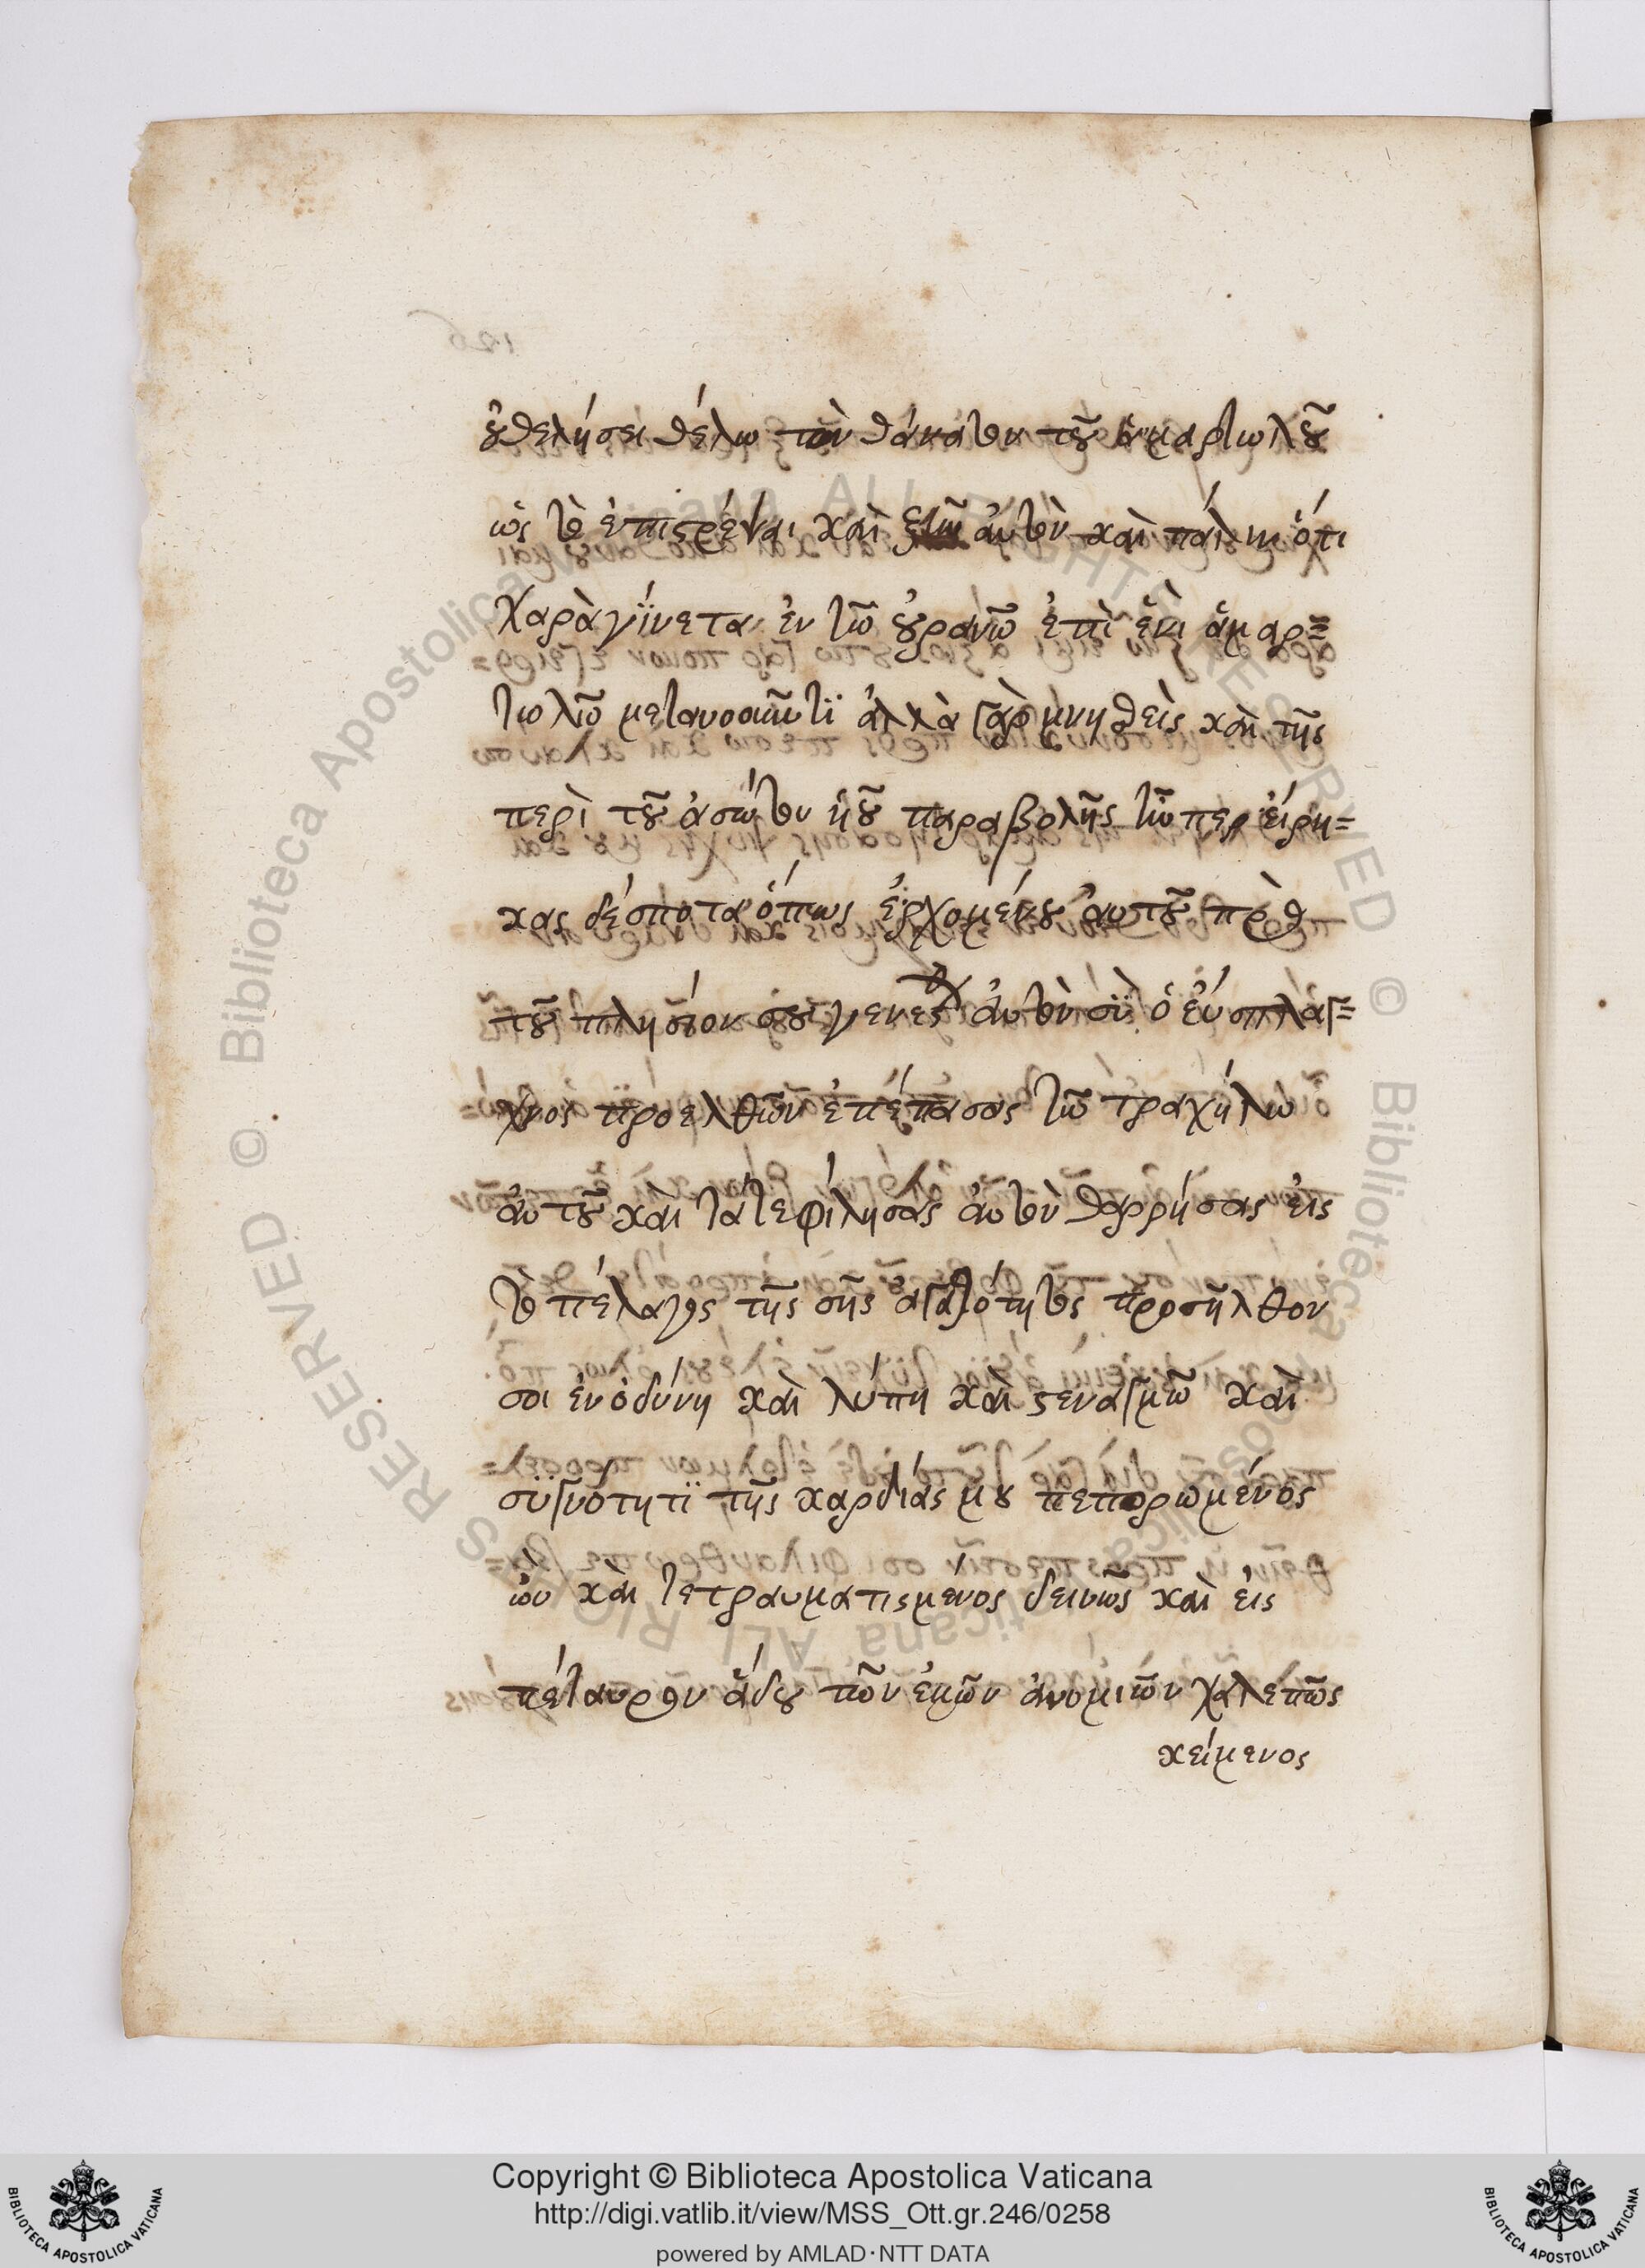 οὐ θελήσει θέλω τὸν θάνατον τοῦ ἁμαρτωλοῦ
ὡς τὸ ἐπιστρέψαι καὶ ζῆν αὐτὸν καὶ πάλιν ὅτι
χαρὰ γίνεται ἐν τῶ οὐρανῶ ἐπὶ ἑνὶ ἁμαρ=
τωλῶ μετανοοῦντϊ ἀλλὰ γὰρ μνηθεὶς καὶ τῆς
περὶ τοῦ ἀσώτου ὑοῦ παραβολῆς τῶπερ εἰρη=
κας δέσποτα ὅπως ἐρχομένου αὐτοῦ πρὸ
τοῦ πλησίον σου γενέσθαι αὐτὸν σὺ ὁ εὔσπλαγ=
χνος προελθῶν ἐπέπασας τῶ τραχήλω
αὐτοῦ καὶ κατεφίλησας αὐτὸν θαρρήσας εἰς
τὸ πέλαγος τῆς σῆς ἀγαθότητος προσῆλθον
σοι ἐν ὀδύνη καὶ λύπη καὶ στεναγμῶ καὶ
συγνότητϊ τῆς καρδίας μου πεπορωμένος
ὢν καὶ τετραυματισμένος δεινῶς καὶ εἰς
πέταυρον ἅδου τῶν ἐμῶν ἀνομιῶν χαλεπῶς
κείμενος
Copyright © Biblioteca Apostolica Vaticana
http://digi.vatlib.it/view/MSS_Ott.gr.246/0258
powered by AMLAD·NTT DATA
BIBLIOTECA APOSTOLICA VATICANA
BIBLIOTECA APOSTOLICA VATICANA